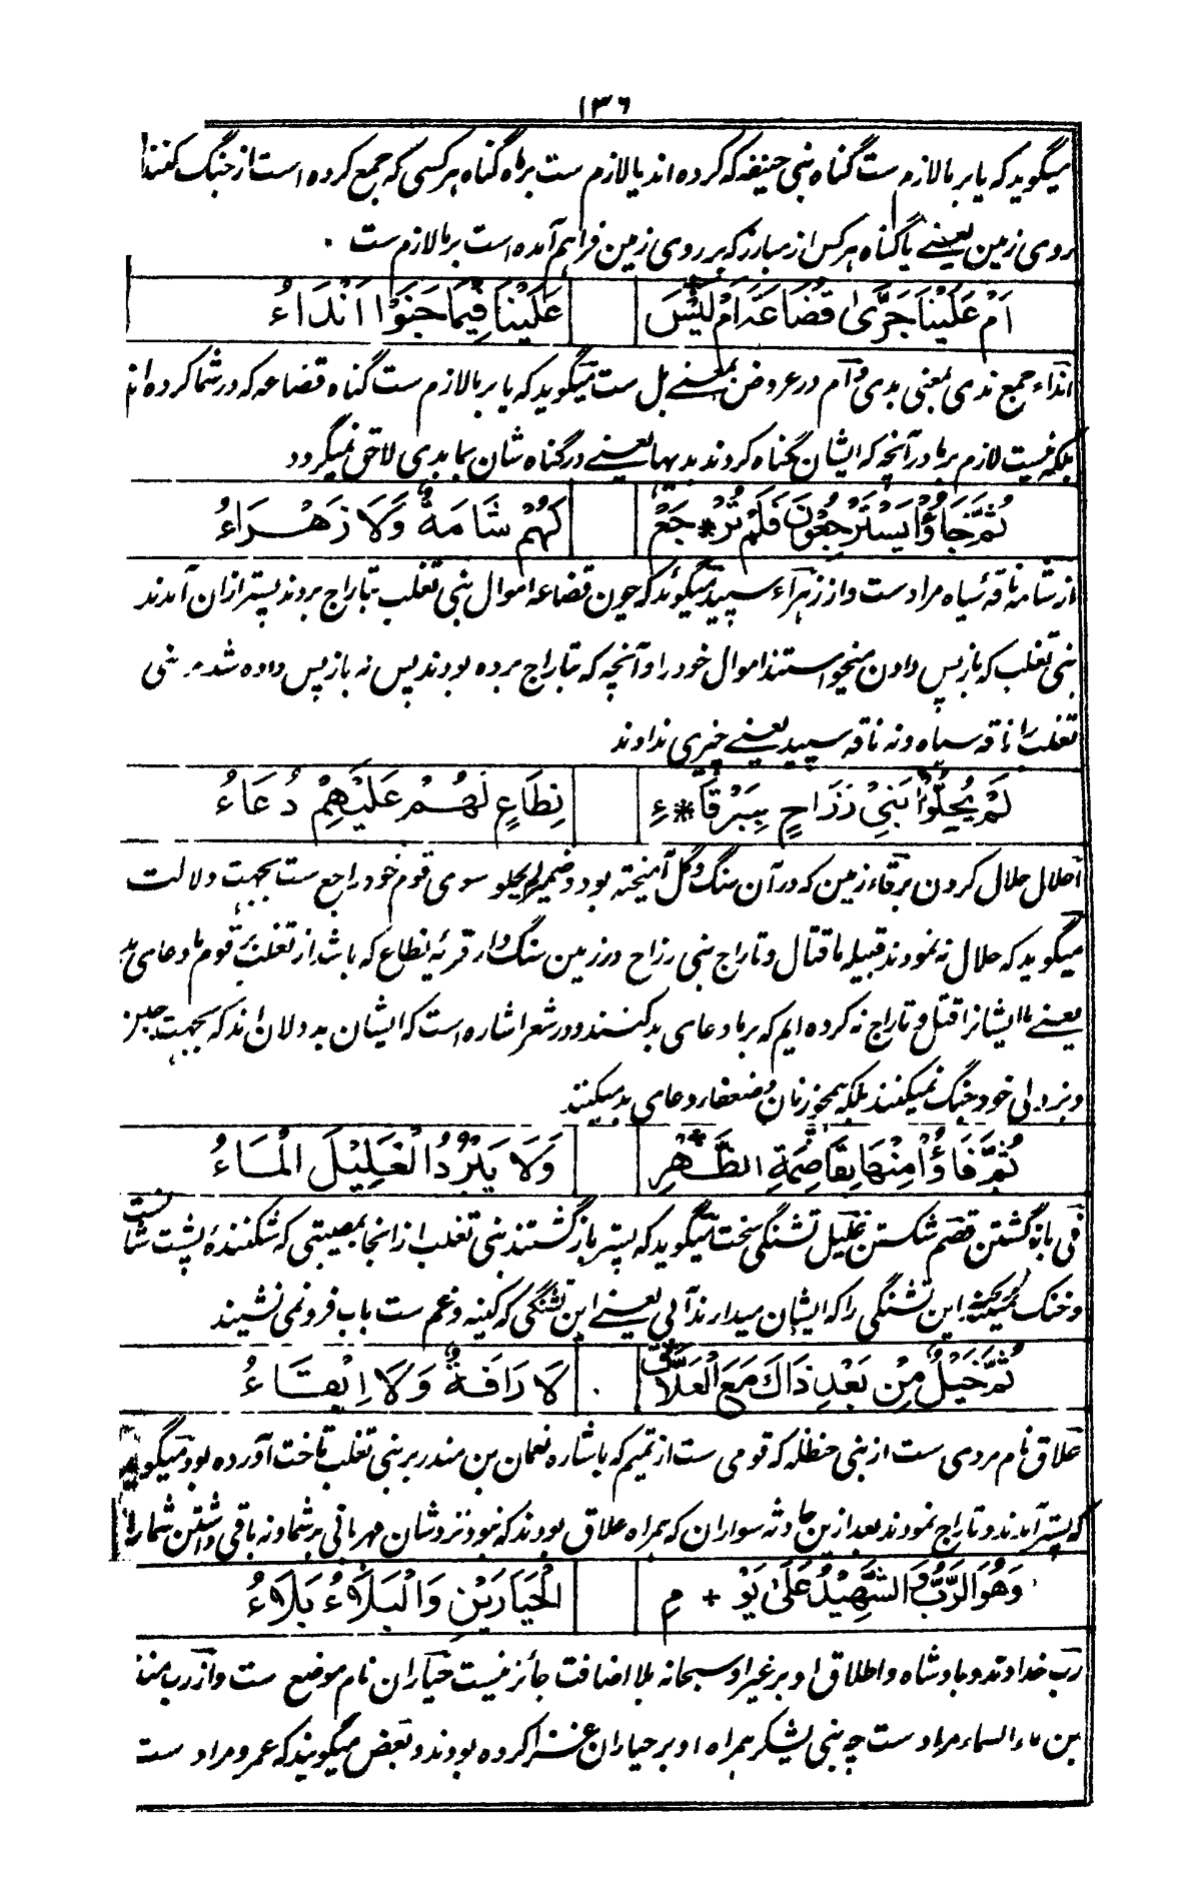 ۱۳۶
میگوید که یا بر ما لازم ست گناه بنی حنیفه که کرده اند یا لازم ست بر ما ه گناه هر کسی که جمع کرده است از جنگ کنند
روی زمین یعنے یا گناه هر کس از مبارز که بر روی زمین فراهم آمده است بر ما لازم ست .
اَمْ عَلَیْنَا جَرّٰی قُضَاعَةَ اَمْ لَیْسَ * عَلَیْنَا فِیْمَا جَنَوْا اَنْدَاءُ
انداء جمع ندی بمعنی بدی و اَم در عروض بمعنے بل ست میگوید که یا بر ما لازم ست گناه قضاعه که در شما کرده اند
بلکه نیست لازم بر ما در آنچه که ایشان گناه کردند بدیها یعنے در گناه شان بما بدی لاحق نمیگردد
ثُمَّ جَاؤُا یَسْتَرْجِعُوْنَ فَلَمْ تُرْ * جَعْ لَهُمْ شَامَةٌ وَلَا زَهْرَاءُ
از شامه ناقهٔ سیاه مراد ست و از زهراء سپید میگوید که چون قضاعه اموال بنی تغلب بتاراج بردند پستر ازان آمدند
بنی تغلب که باز پس دادن میخواستند اموال خود را و آنچه که بتاراج برده بودند پس نه باز پس داده شد مر بنی
تغلب را ناقه سیاه و نه ناقه سپید یعنے چیزی ندادند
لَمْ یُحِلُّوْا بَنِیْ رَزَاحٍ بِبَرْقَا * ءِ نِطَاعٍ لَهُمْ عَلَیْهِمْ دُعَاءُ
احلال حلال کردن برقاء زمین که در آن سنگ و گل آمیخته بود و ضمیر لم یحلو سوی قوم خود راجع ست بجهت دلالت
میگوید که حلال نه نمودند قبیله ما قتال و تاراج بنی رزاح در زمین سنگ دار قریهٔ نطاع که باشد از تغلب بر قوم ما دعای بد
یعنے ما ایشانرا قتل و تاراج نه کرده ایم که بر ما دعای بد کنند و در شعر اشاره است که ایشان بد دلان اند که بجهت جبن
و بزدلی خود جنگ نمیکنند بلکه همچو زنان و ضعفا رو دعای بد میکنند
ثُمَّ فَاؤُا مِنْهَا بِقَاصِمَةِ الظَّهْرِ * وَلَا یَبْرُدُ الْغَلِیْلَ الْمَاءُ
فی باز گشتن قصم شکستن غلیل تشنگی سخت میگوید که پستر باز گشتند بنی تغلب از انجا بمصیبتی که شکنندهٔ پشت شان ست
و خنک نمیکند این تشنگی را که ایشان میدارند آبی یعنے این تشنگی که کینه و غم ست باب فرو نمی نشیند
ثُمَّ خَیْلٌ مِنْ بَعْدِ ذَاكَ مَعَ الْغَلَّاقِ . لَا رَافَةٌ وَلَا اِبْقَاءُ
غلاق نام مردی ست از بنی حنظله که قومی ست از تمیم که باشاره نعمان بن منذر بر بنی تغلب تاخت آورده بود میگوید
که پستر آمدند و تاراج نمودند بعد ازین حادثه سواران که همراه غلاق بودند که نبود نزد شان مهربانی بر شما و نه باقی داشتن شما را
وَهُوَ الرَّبُّ وَالشَّهِیْدُ عَلٰی یَوْ + مِ الْحَیَارَیْنِ وَالْبَلَاءُ بَلَاءُ
رب خداوند و بادشاه و اطلاق او بر غیر او سبحانه بلا اضافت جائز نیست حیاران نام موضع ست و از رب منذر
بن ماء السماء مراد ست چه بنی یشکر همراه او بر حیاران غزا کرده بودند و بعض میگویند که عمرو مراد ست